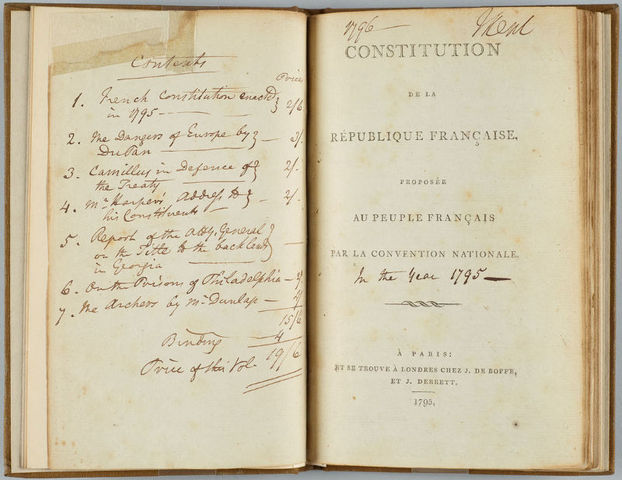 Contents
Price
1. French Constitution enacted
in 1795 — 2/6
2. The Dangers of Europe by
DuPan — 2/.
3. Camillus in Defence of
the Treaty — 2/.
4. Mr Harper's Address to
his Constituents — 2/.
5. Report of the Atty. General
on the Title to the back land
in Georgia —
6. On the Prisons of Philadelphia —
7. The Archers by Mr Dunlap —
15/6
Binding 4
Price of this Vol. 19/6
1796
CONSTITUTION
DE LA
RÉPUBLIQUE FRANÇAISE,
PROPOSÉE
AU PEUPLE FRANÇAIS
PAR LA CONVENTION NATIONALE.
In the Year 1795 —
À PARIS:
ET SE TROUVE À LONDRES CHEZ J. DE BOFFE,
ET J. DEBRETT.
1795.